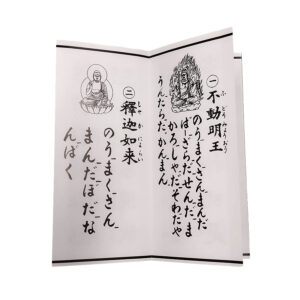 一 不動明王
ふどうみょうおう
のうまくさんまんだ
ばーざらだせんだーま
かろしゃだそわたや
うんたらた、かんまん
二 釋迦如来
しゃかにょらい
のうまくさん
まんだぼだな
んばく